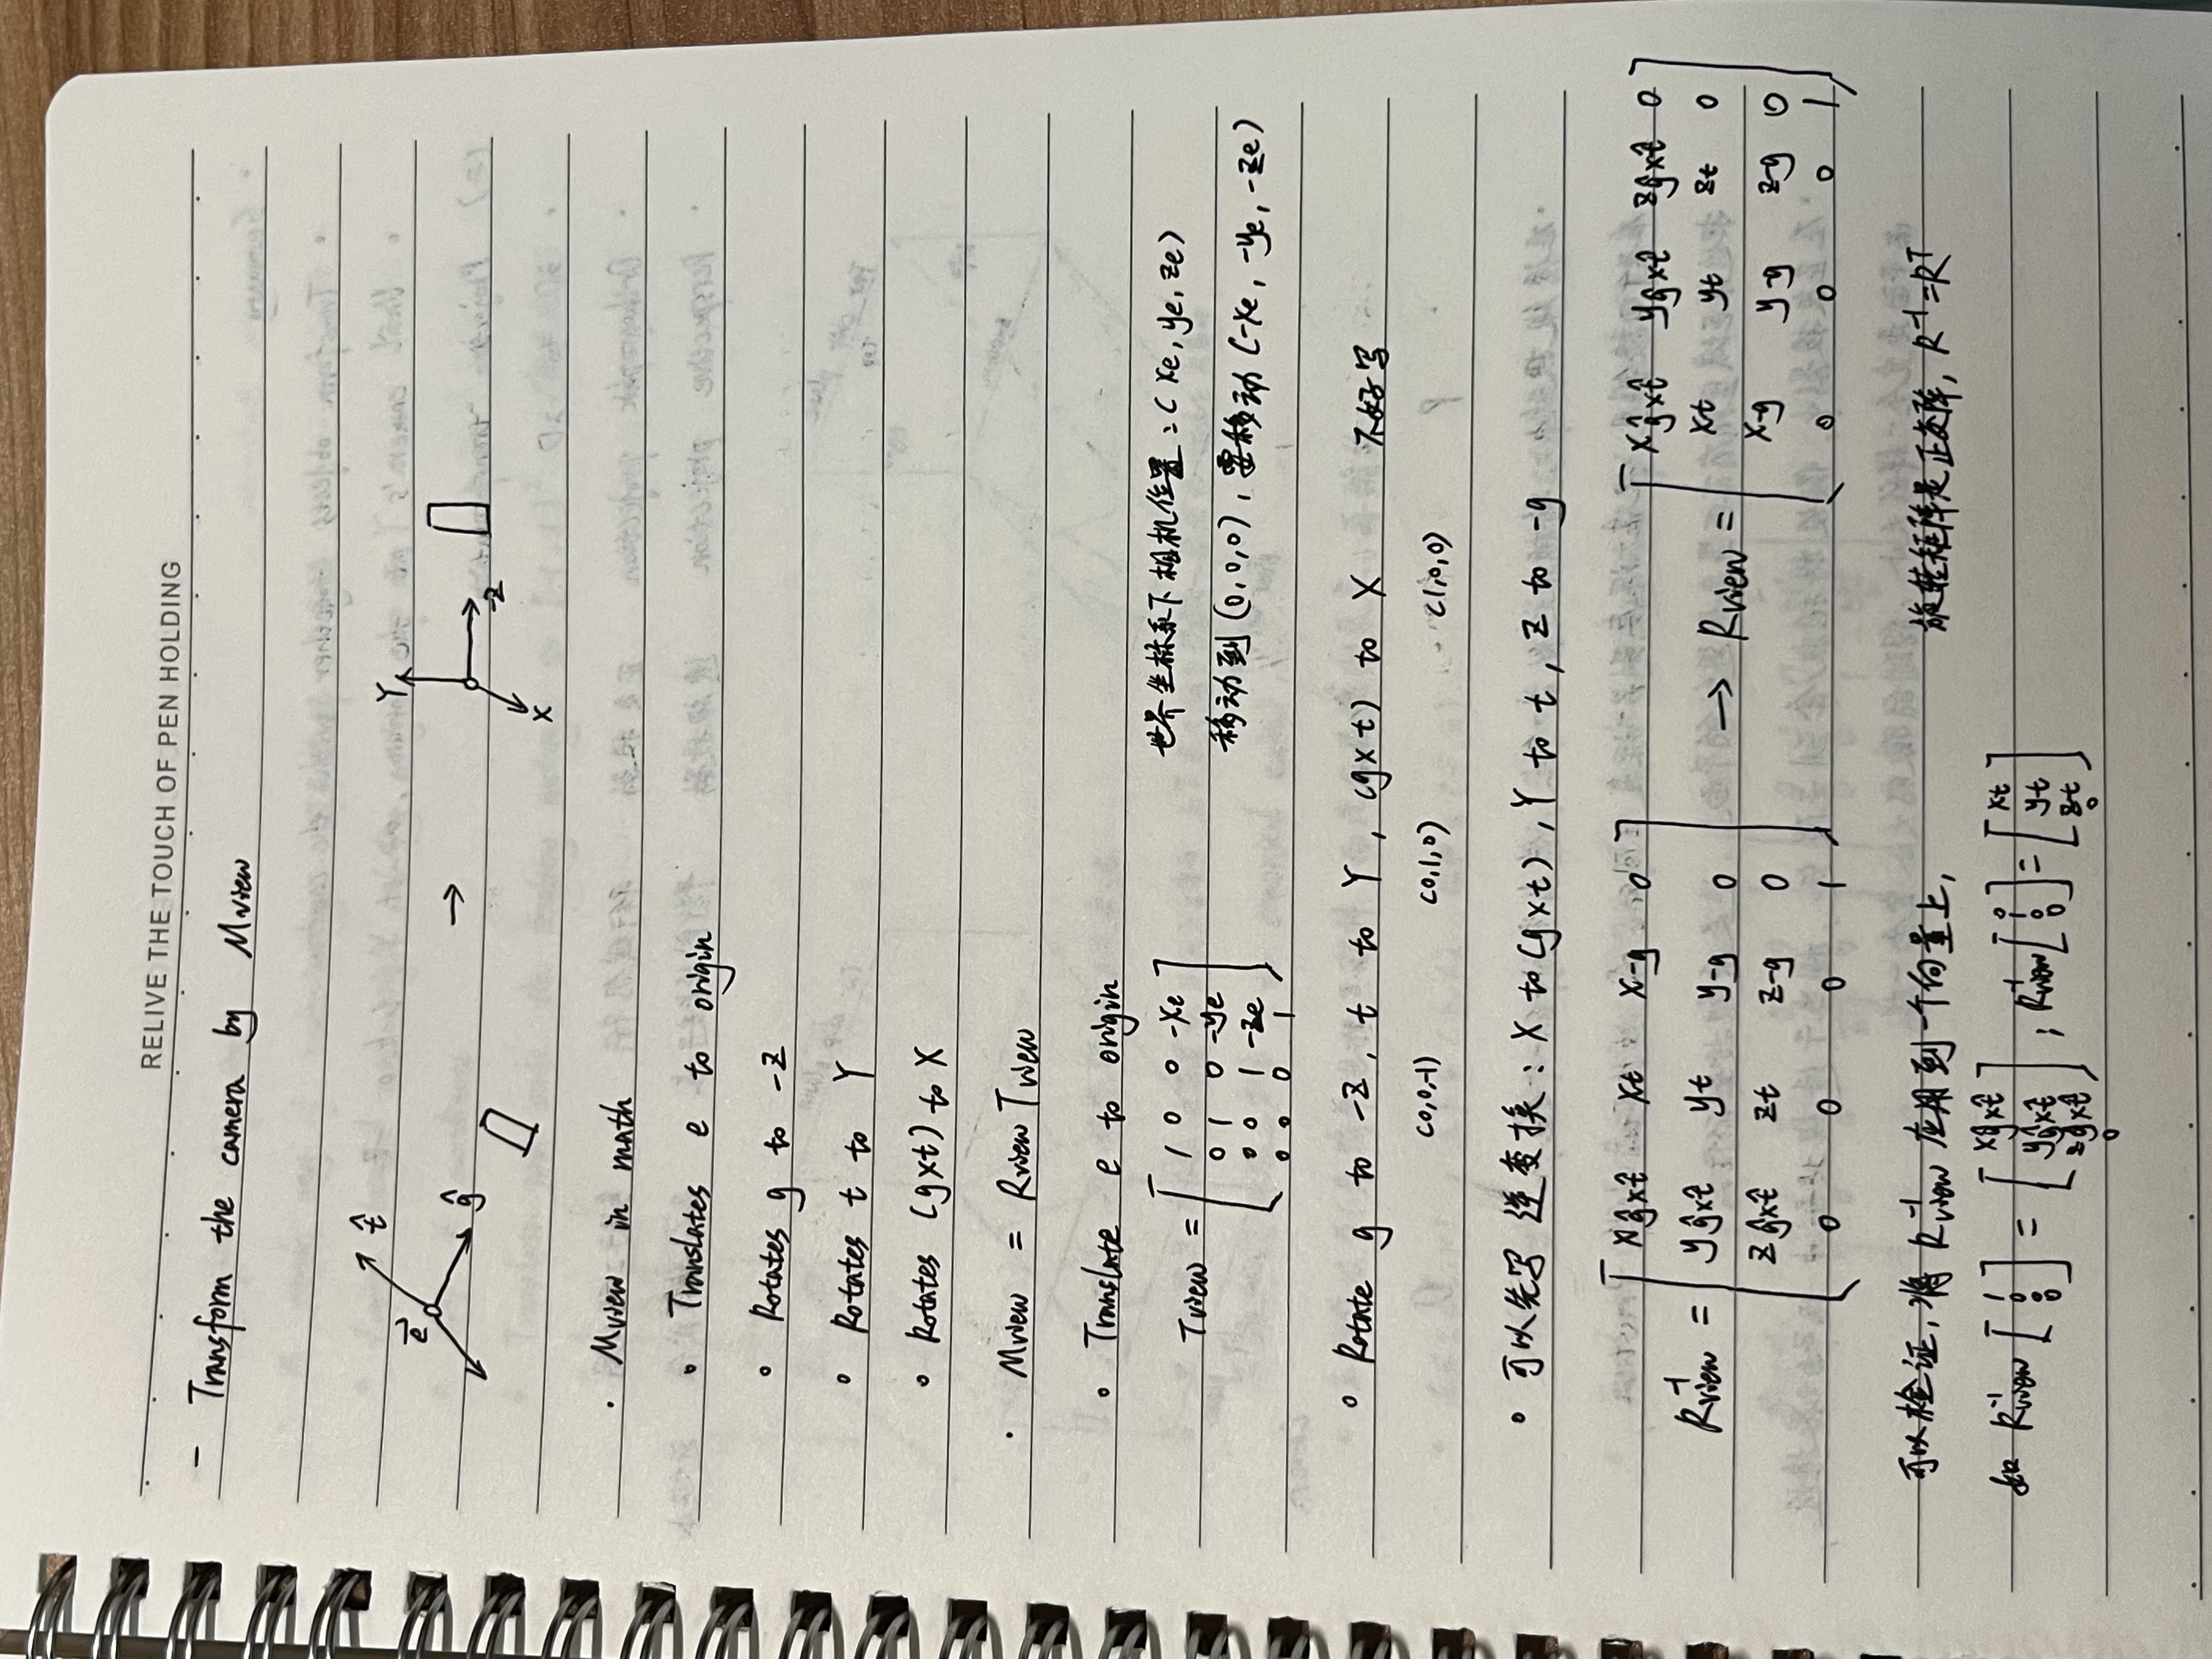 RELIVE THE TOUCH OF PEN HOLDING
- Transform the camera by Mview
e⃗ t̂ ĝ → Y X -Z
· Mview in math
∘ Translates e to origin
∘ Rotates g to -Z
∘ Rotates t to Y
∘ Rotates (g×t) to X
· Mview = Rview Tview
∘ Translate e to origin
世界坐标系下相机位置:(xe, ye, ze)
移动到(0,0,0), 要移动(-xe, -ye, -ze)
Tview = [ 1 0 0 -xe
0 1 0 -ye
0 0 1 -ze
0 0 0 1 ]
∘ Rotate g to -Z, t to Y, (g×t) to X 不好写
(0,0,-1) (0,1,0) (1,0,0)
∘ 可以先写 逆变换: X to (g×t), Y to t, Z to -g
Rview⁻¹ = [ xĝ×t̂ xt x-g 0
yĝ×t̂ yt y-g 0
zĝ×t̂ zt z-g 0
0 0 0 1 ]
→ Rview = [ xĝ×t̂ yĝ×t̂ zĝ×t̂ 0
xt yt zt 0
x-g y-g z-g 0
0 0 0 1 ]
可以检证, 将 Rview⁻¹ 应用到一个向量上, 旋转矩阵是正交阵, R⁻¹=Rᵀ
如 Rview⁻¹ [ 1 0 0 ] = [ xĝ×t̂ yĝ×t̂ zĝ×t̂ 0 ] ; Rview⁻¹ [ 0 1 0 0 ] = [ xt yt zt 0 ]